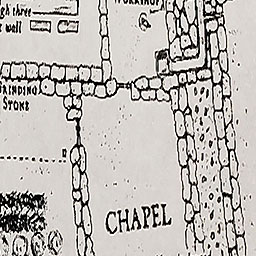 gh three
t well
WORKSHOP
GRINDING
STONE
CHAPEL